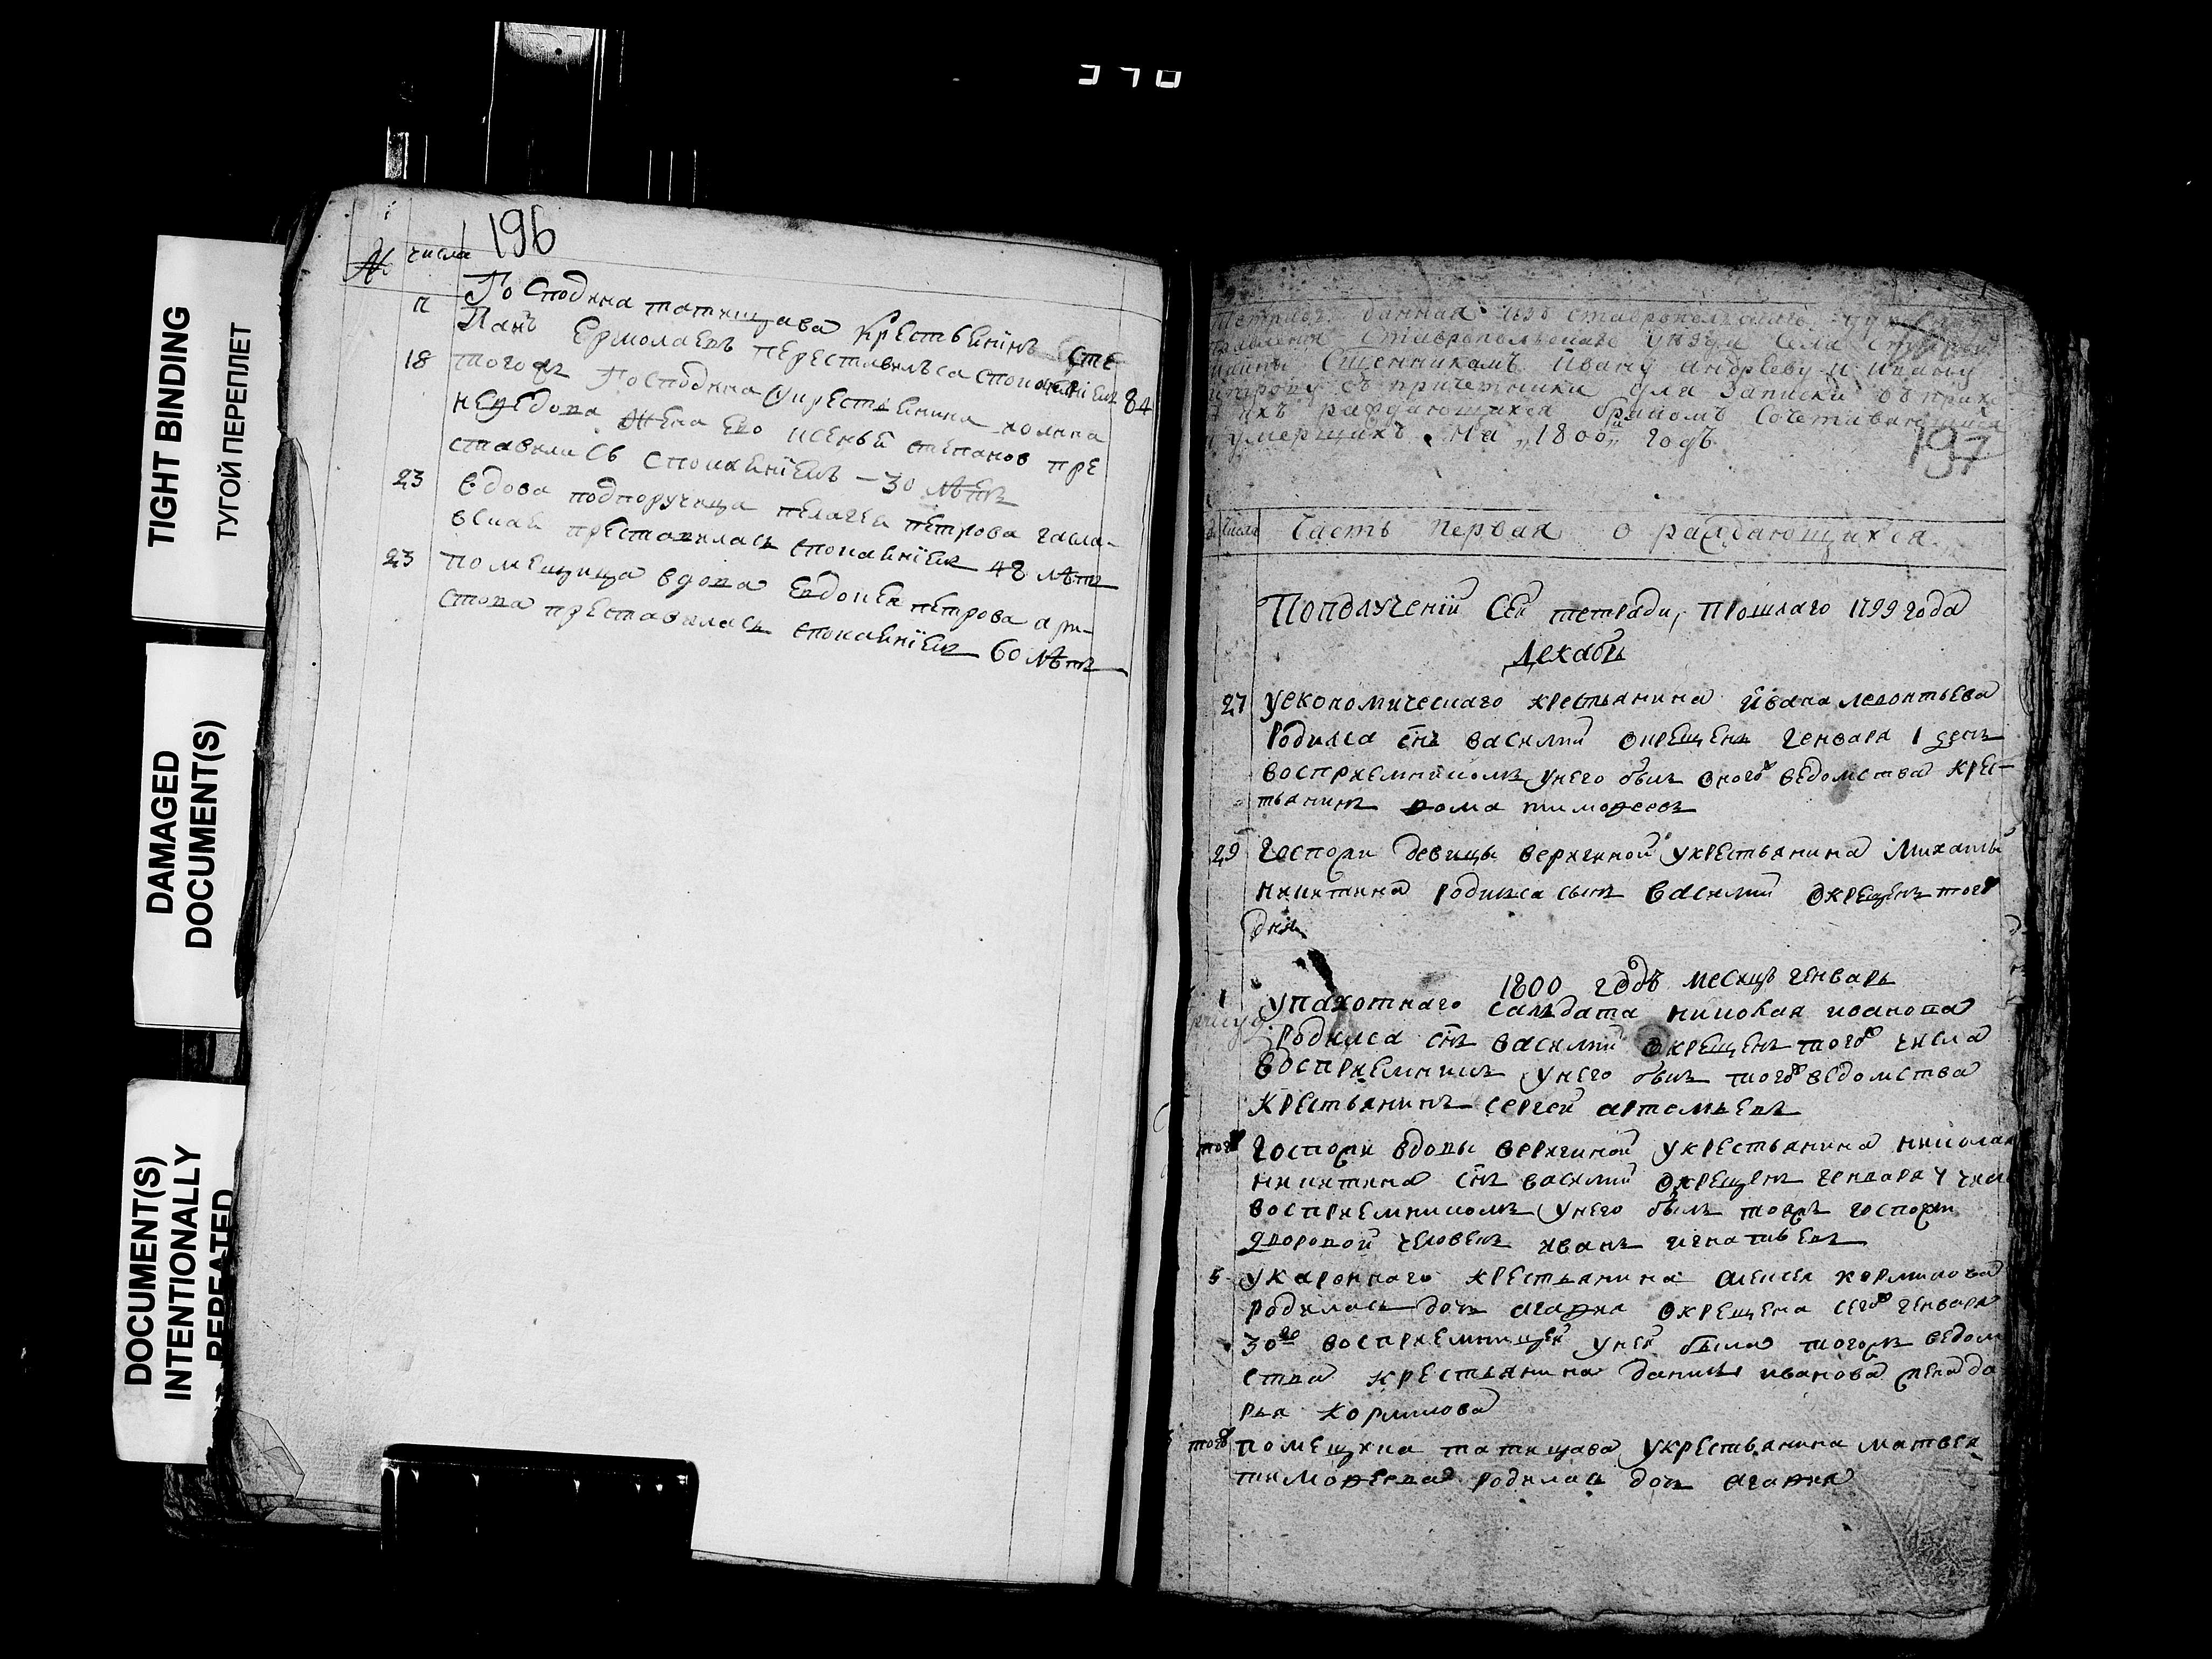 370
TIGHT BINDING
ТУГОЙ ПЕРЕПЛЕТ
DAMAGED
DOCUMENT(S)
DOCUMENT(S)
INTENTIONALLY
REPEATED
196
№ числа
Господина татищава крестьянинъ Сте
панъ Ермолаевъ перестависа спокаяніем 84
18 тогож господина крестьянина
жена его степанов пре
ставилась спокаяніемъ 30 лѣтъ
23 вдова подпоручица пелагея петрова
преставилась спокаяніем 48 лѣтъ
23 помещица вдова Евдокея петрова
преставилась спокаяніем 60 лѣтъ
тетрадь данная изъ ставропольскаго
правления Ставропольскаго уезда села
Сщенникамъ Ивану андрѣеву и ивану
петрову съ причетники для записки въ прихо
ихъ раждающихся бракомъ сочетивающихся
умерщихъ. на 1800й годъ.
197
число Часть первая о раждающихся
По получении сей тетради, прошлаго 1799 года
декабрь
27 у економическаго крестьянина Ивана леонтьева
родился снъ василий окрещенъ генваря 1 день
восприемником у него был оного ведомства крес-
тьянинъ фома тимофеевъ
29 госпожи девицы верягиной у крестьянина Михаилы
никитина родился сынъ василий окрещенъ того
дня
1800 годъ месяцъ генварь
1 у пахотнаго салдата николая иванова
родился снъ василий окрещенъ того числа
восприемником у него был того ведомства
крестьянинъ сергей артемьевъ
того госпожи вдовы верягиной у крестьянина николая
никитина снъ василий окрещенъ генваря 4 числ
восприемником у него былъ тояж госпожи
дворовой человекъ иванъ игнатьевъ
5 у крестьянина алексея кормилова
родилась дочь агафия окрещена сего генваря
30го восприемницей у ней была тогож ведом
ства крестьянина данилы иванова жена да
рья кормилова
того помещика татищава у крестьянина матвея
тимофеева родилась дочь агафия